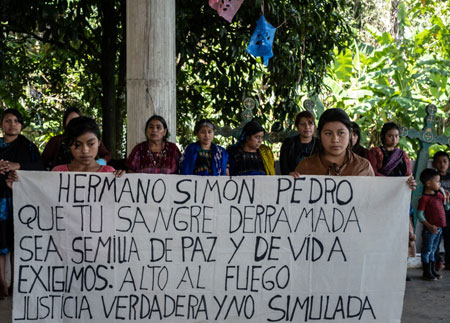 HERMANO SIMÓN PEDRO
QUE TU SANGRE DERRAMADA
SEA SEMILLA DE PAZ Y DE VIDA
EXIGIMOS: ALTO AL FUEGO
JUSTICIA VERDADERA Y NO SIMULADA